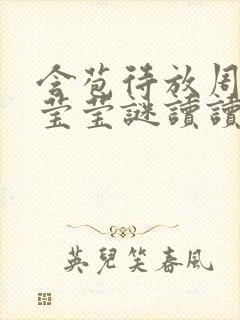 含苞待放周
莹莹謎讀讀
英兒笑春風